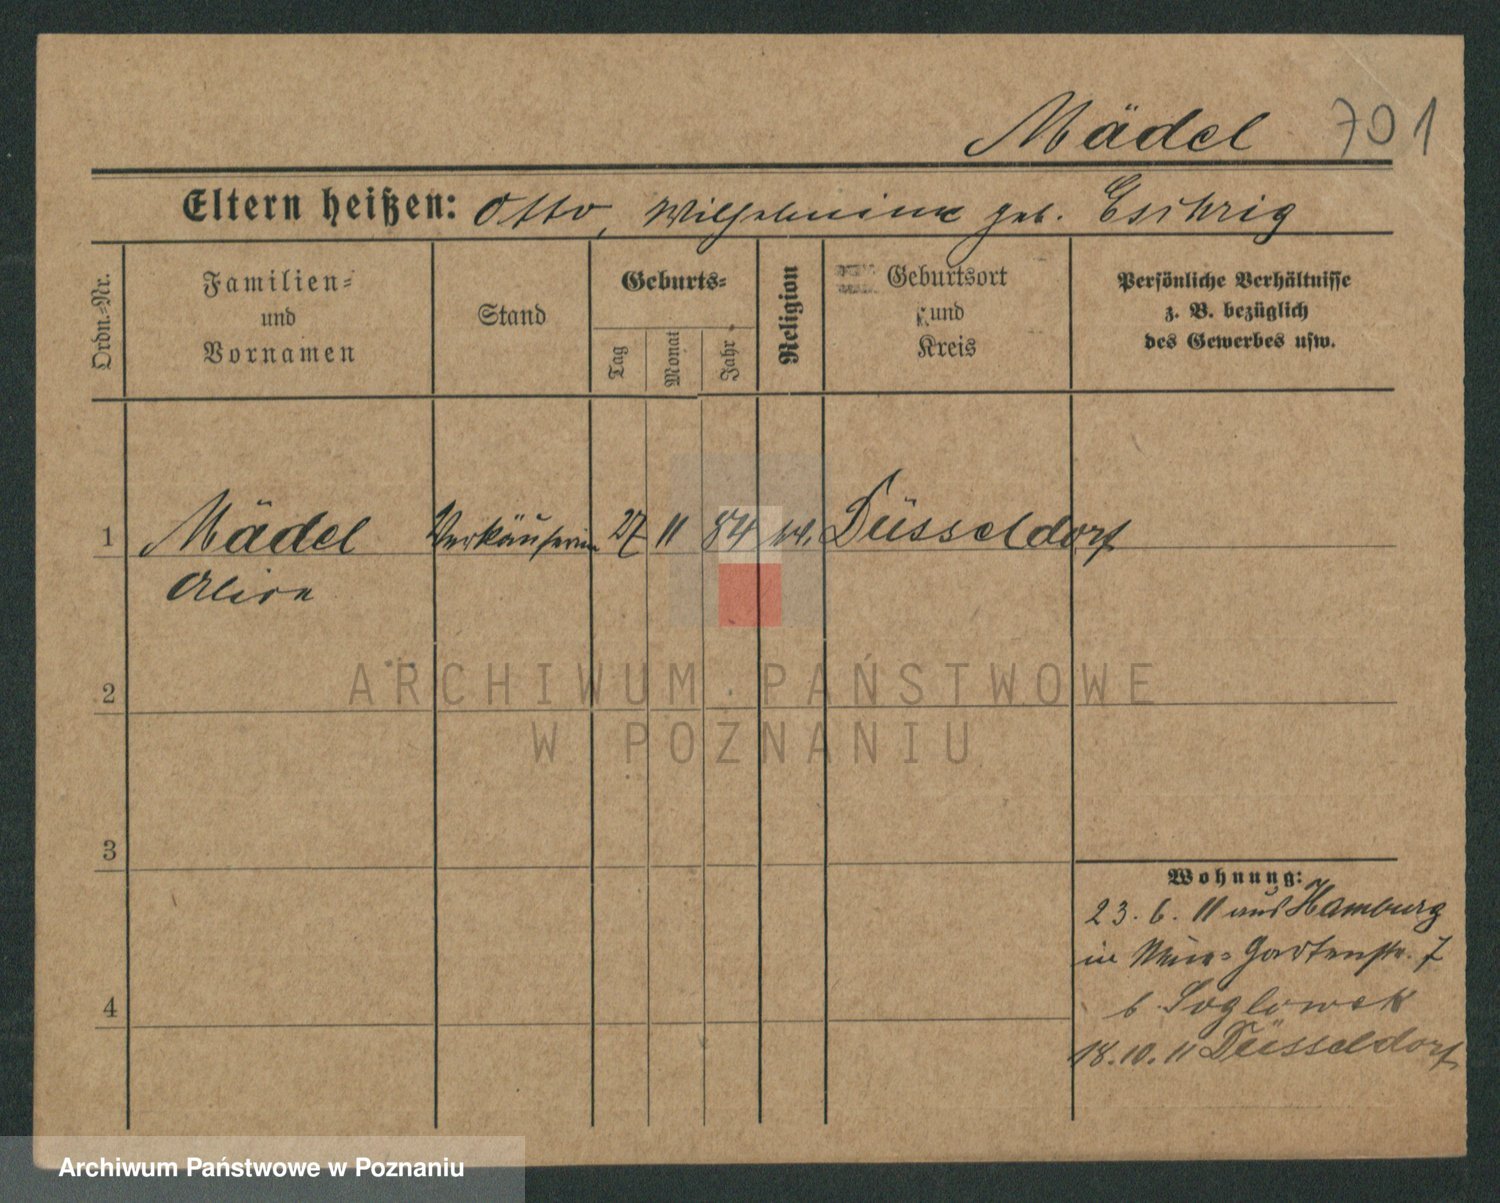 Mädel 701
Eltern heißen: Otto, Wilhelmine geb.
Ordn.-Nr.
Familien-
und
Vornamen
Stand
Geburts-
Tag
Monat
Jahr
Religion
Geburtsort
und
Kreis
Persönliche Verhältnisse
z. B. bezüglich
des Gewerbes usw.
1 Mädel Verkäuferin 27 11 84 Düsseldorf
Alice
2
3
4
Wohnung:
23. 6. 11 aus Hamburg
in Gartenstr. 7
b.
18. 10. 11 Düsseldorf
ARCHIWUM PAŃSTWOWE
W POZNANIU
Archiwum Państwowe w Poznaniu